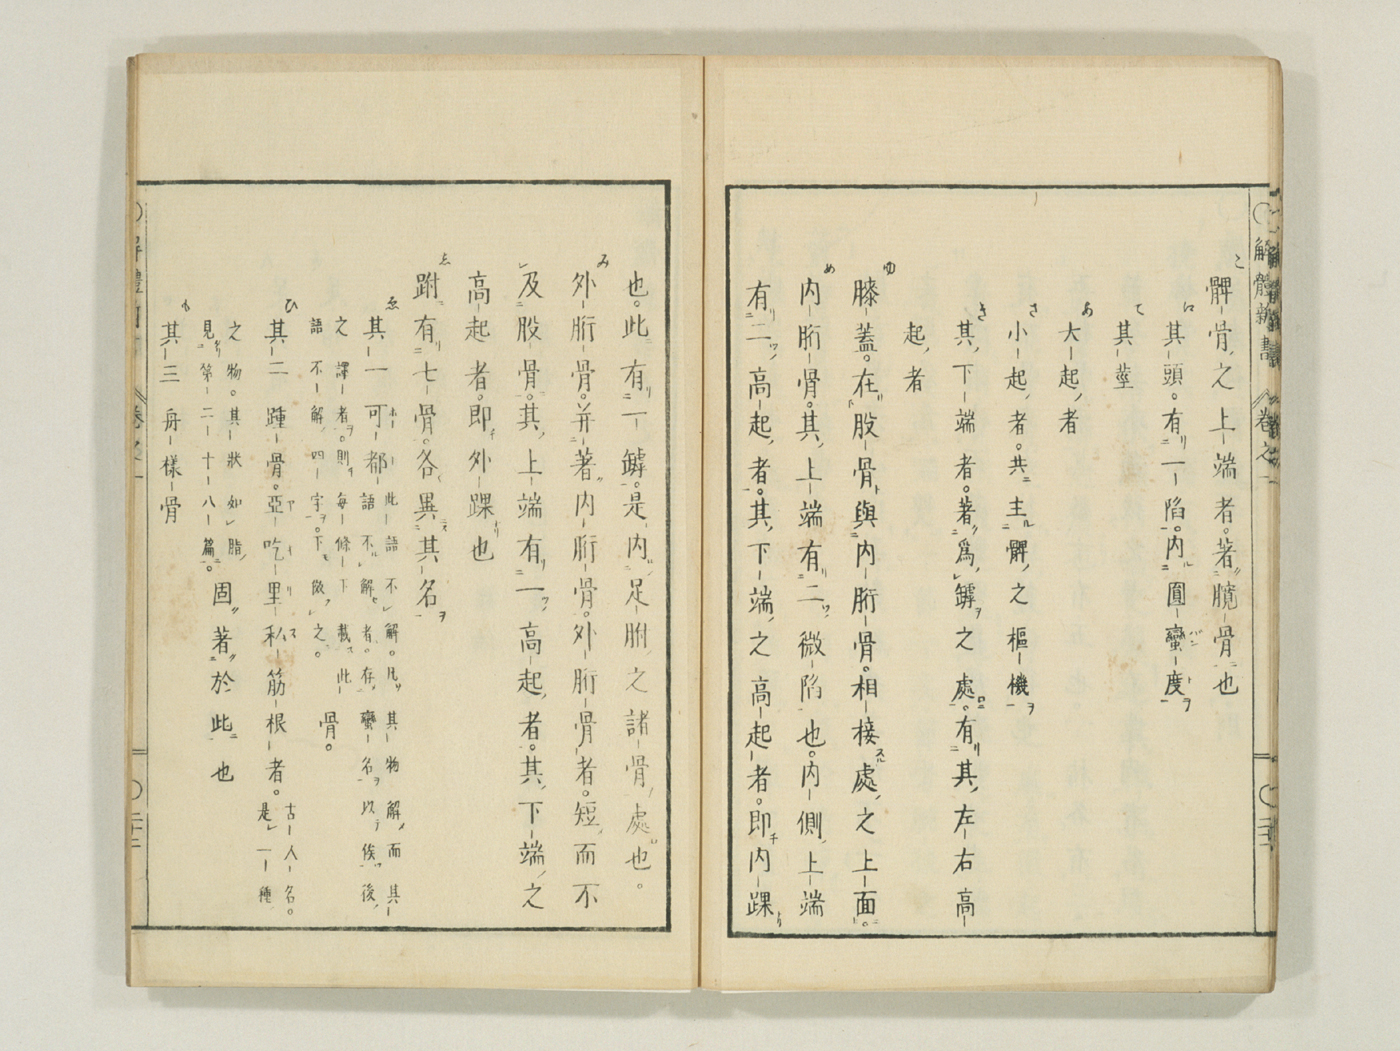 解體新書 卷之一
髀骨之上端者。著臗骨也
其頭。有一陷。内圓蠻度
其莖
大起者
小起者。共主髀之樞機
其下端者。著爲罅之處。有其左右高
起者
膝蓋。在股骨與内胻骨。相接處之上面。
内胻骨。其上端有二微陷也。内側上端
有二高起者。其下端之高起者。即内踝
也。此有一罅。是内足胕之諸骨處也。
外胻骨。并著内胻骨。外胻骨者。短而不
及股骨。其上端有一高起者。其下端之
高起者。即外踝也
跗有七骨。各異其名
其一可都 此語不解。凡其物解而其
語不解者。存蠻名以俟後
之譯者。則每條下載此
語不解四字。下倣之。 骨。
其二踵骨。亞吃里私筋根者。 古人名。
是一種
之物。其狀如脂
見第二十八篇。 固著於此也
其三舟樣骨